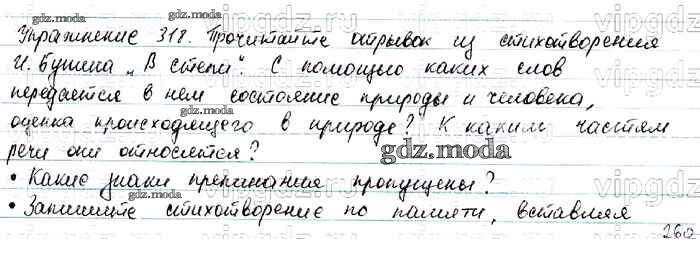 Упражнение 318. Прочитайте отрывок из стихотворения
И. Бунина „В степи". С помощью каких слов
передается в нем состояние природы и человека,
оценка происходящего в природе? К каким частям
речи они относятся?
• Какие знаки препинания пропущены?
• Запишите стихотворение по памяти, вставляя
260
gdz.moda
gdz.moda
gdz.moda
gdz.moda
gdz.moda
gdz.moda
vipgdz.ru
vipgdz
vipgdz
vipgdz